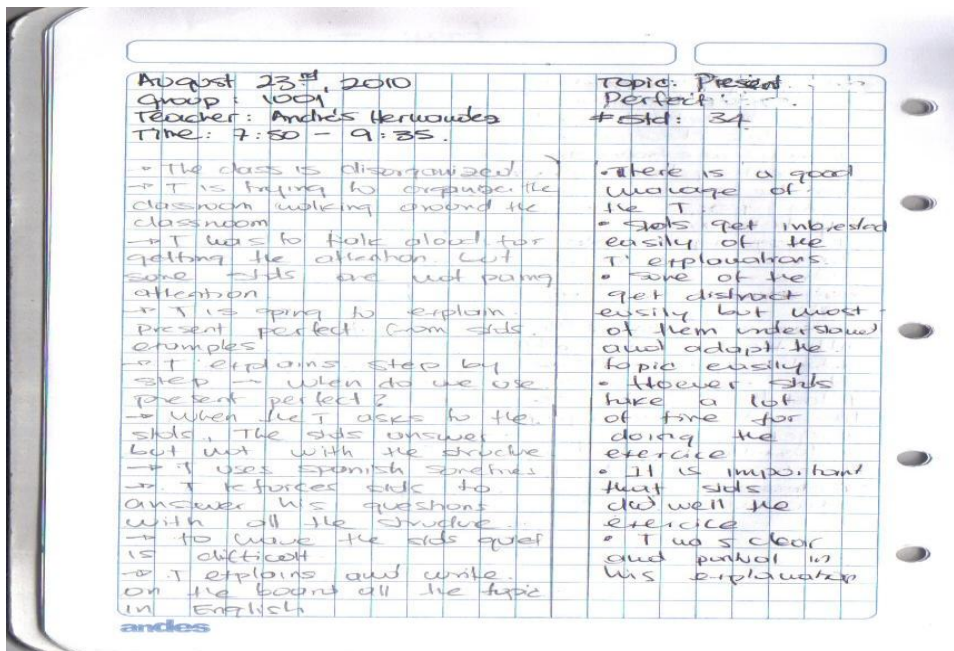 August 23rd, 2010
Group: 1001
Teacher: Andrés Hernandez
Time: 7:50 - 9:35.
Topic: Present
Perfect
# std: 34
→ The class is disorganized
→ T is trying to organize the
classroom walking around the
classroom
→ T has to talk aloud for
getting the attention. but
some stds are not paing
attention
→ T is going to explain
present perfect from stds
examples
→ T explains step by
step → when do we use
present perfect?
→ When the T asks to the
stds, The stds answer
but not with the strucure
→ T uses spanish sometimes
→ T reforces stds to
answer his questions
with all the strucure
→ to have the stds quiet
is difficult
→ T explains and write
on the board all the topic
in English
• There is a good
manage of
the T.
• Stds get interested
easily of the
T' explanations.
• some of the
get distract
easily but most
of them understand
and adapt the
topic easily
• Hoever stds
take a lot
of time for
doing the
exercice
• It is important
that stds
did well the
exercice
• T was clear
and in
his explanation
andes